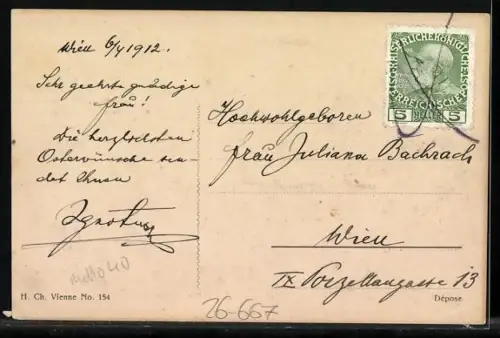 Wien 6/4 1912.
Sehr geehrte gnädige
Frau!
Die herzlichsten
Osterwünsche sen-
det Ihnen
Hochwohlgeboren
Frau Juliana Bachrach
Wien
IX Porzellangasse 13
KAISERLICHE KÖNIGLICHE
ÖSTERREICHISCHE
5 HELLER 5
H. Ch. Vienne No. 154
26-667
Déposé